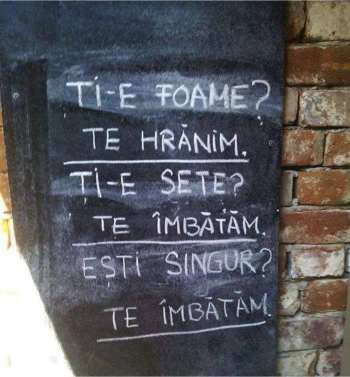 ȚI-E FOAME?
TE HRĂNIM.
ȚI-E SETE?
TE ÎMBĂTĂM.
EȘTI SINGUR?
TE ÎMBĂTĂM